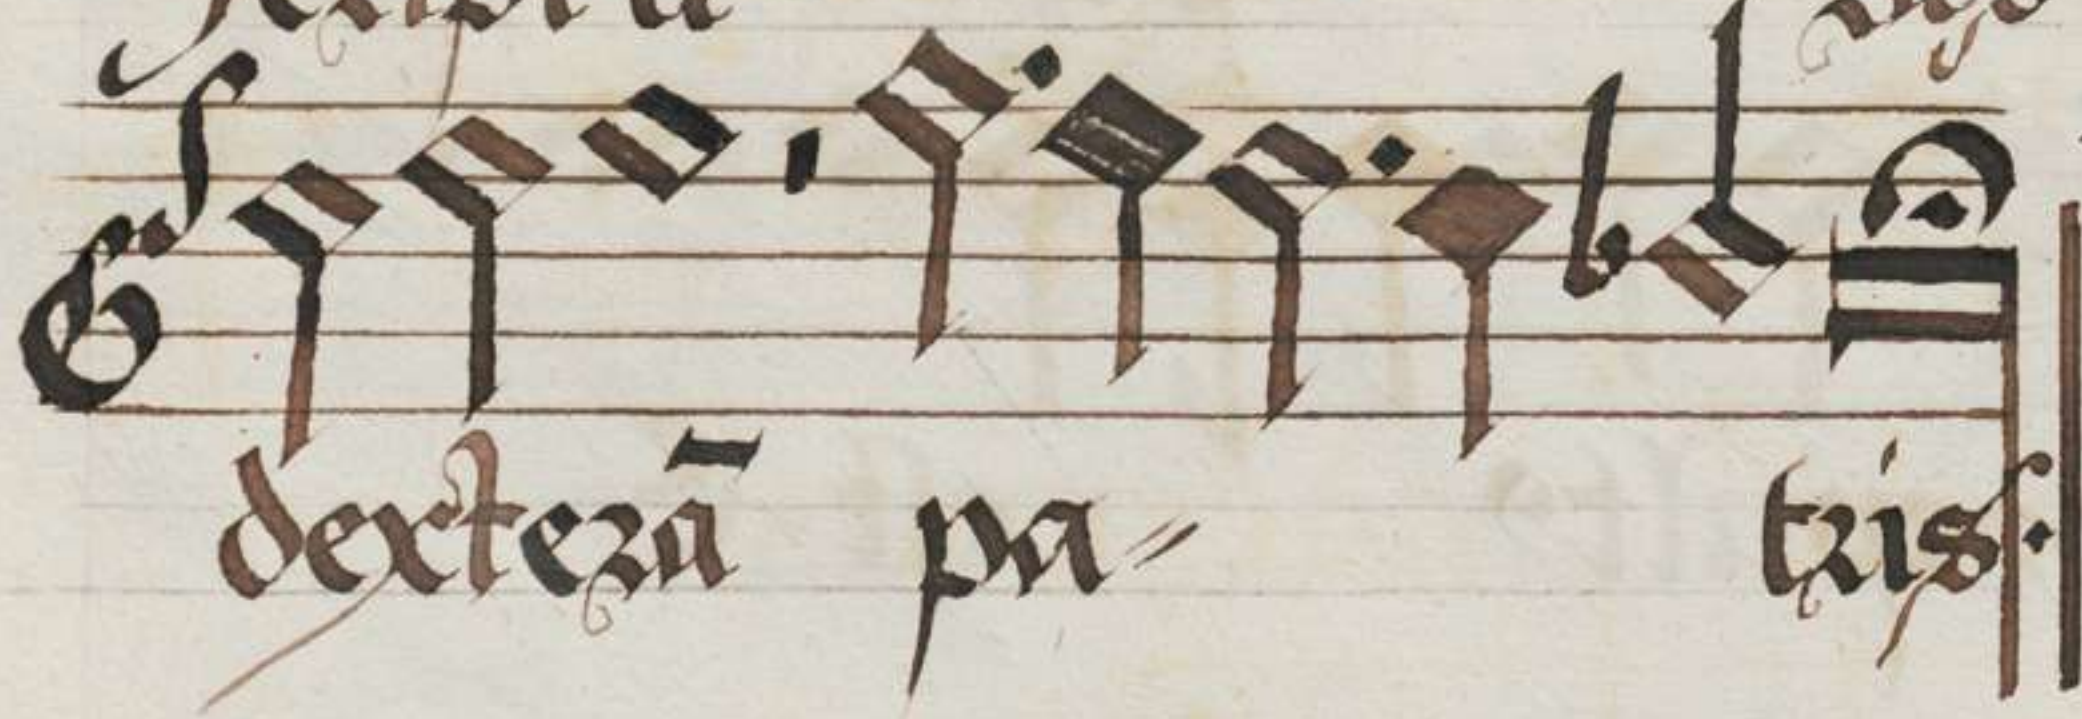 dexterā pa-
tris: